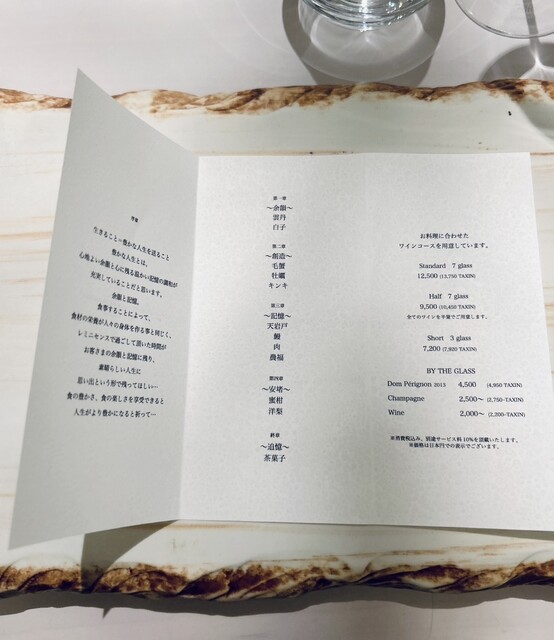 序章
生きること＝豊かな人生を送ること
豊かな人生とは、
心地よい余韻と心に残る温かい記憶の調和が
充実していることだと思います。
余韻と記憶。
食事することによって、
食材の栄養が人々の身体を作る事と同じく、
レミニセンスで過ごして頂いた時間が
お客さまの余韻と記憶に残り、
素晴らしい人生に
思い出という形で残ってほしい…
食の豊かさ、食の楽しさを享受できると
人生がより豊かになると祈って…
第一章
〜余韻〜
雲丹
白子
第二章
〜創造〜
毛蟹
牡蠣
キンキ
第三章
〜記憶〜
天岩戸
鰻
肉
農福
第四章
〜安堵〜
蜜柑
洋梨
終章
〜追憶〜
茶菓子
お料理に合わせた
ワインコースを用意しています。
Standard 7 glass
12,500 (13,750 TAXIN)
Half 7 glass
9,500 (10,450 TAXIN)
全てのワインを半量でご用意します。
Short 3 glass
7,200 (7,920 TAXIN)
BY THE GLASS
Dom Pérignon 2013 4,500 (4,950 TAXIN)
Champagne 2,500〜 (2,750-TAXIN)
Wine 2,000〜 (2,200-TAXIN)
※消費税込み、別途サービス料10%を頂戴いたします。
※価格は日本円での表示でございます。